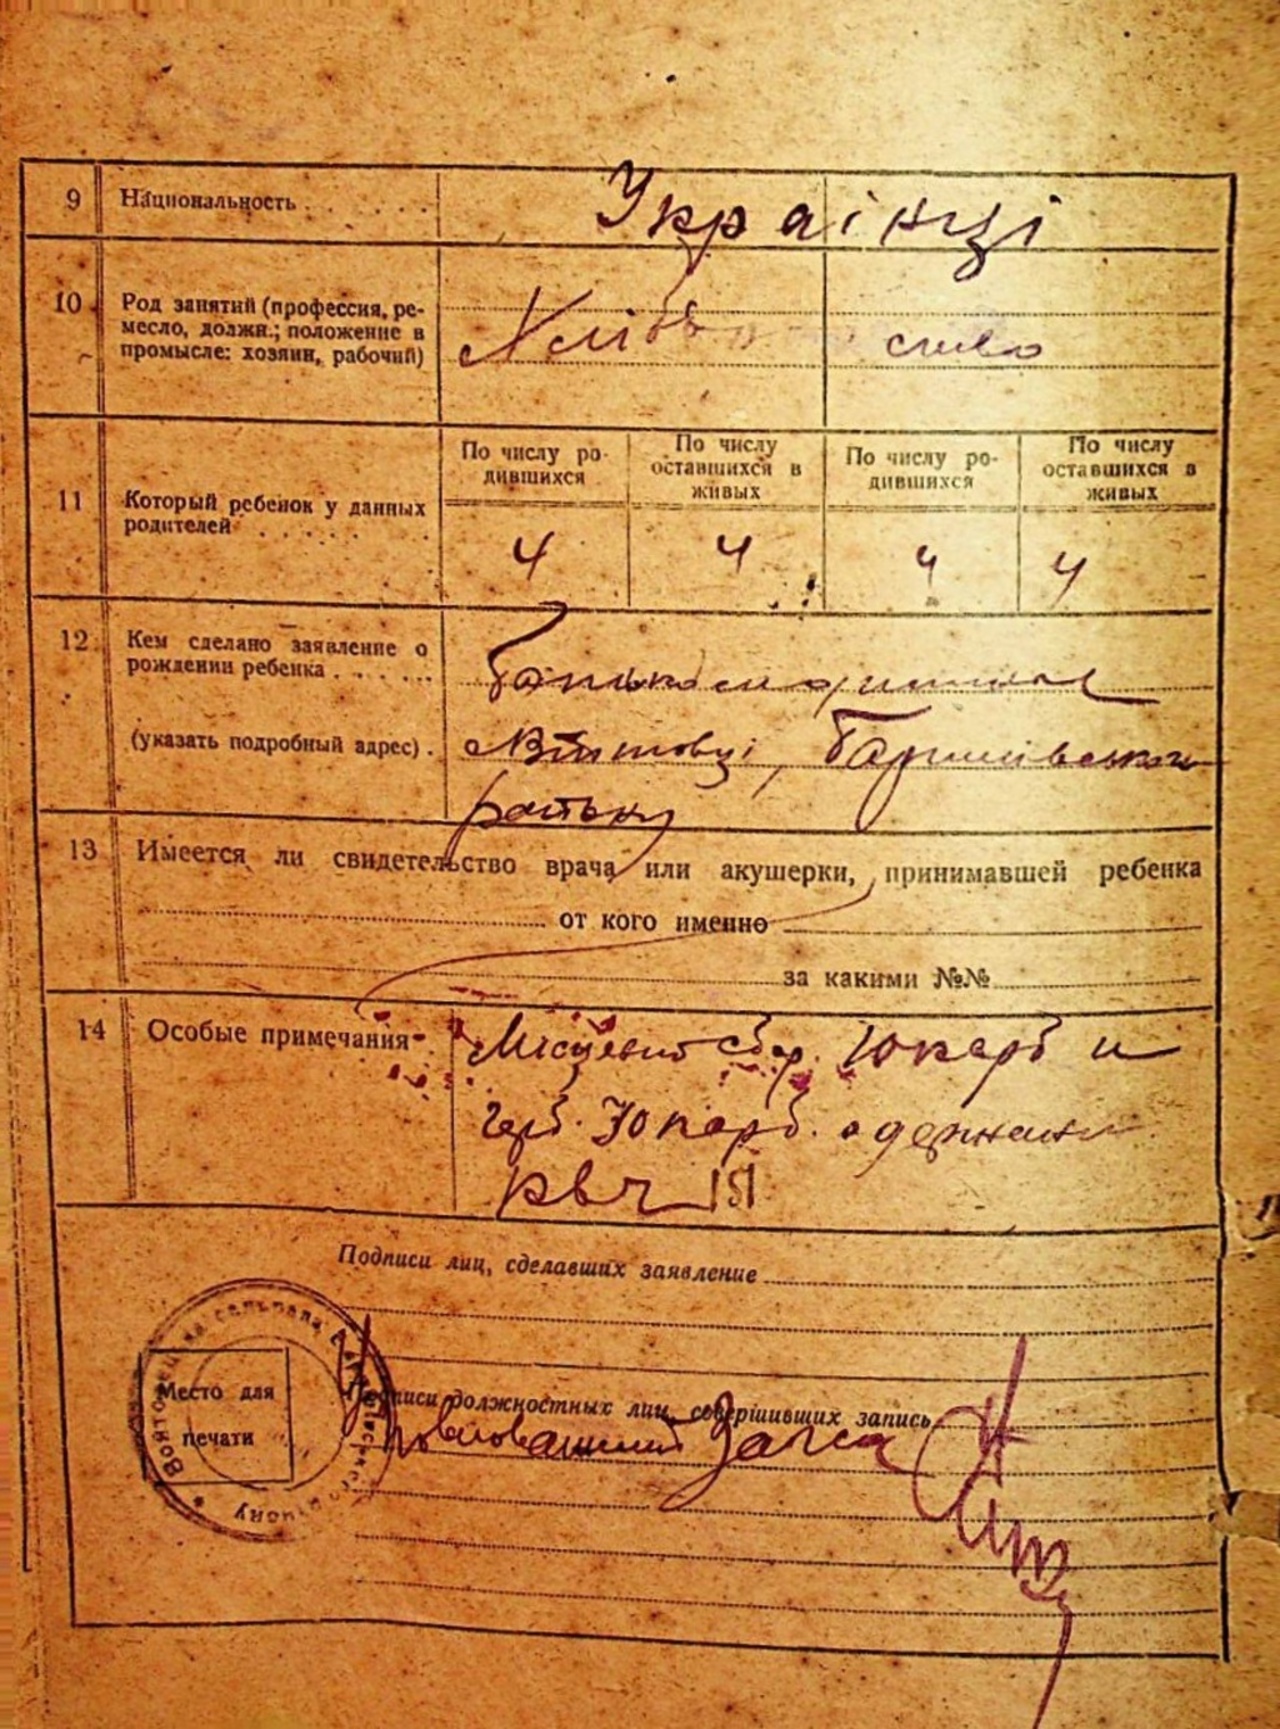 9 Национальность . . . . . . Українці
10 Род занятий (профессия, ре-
месло, должн.; положение в
промысле: хозяин, рабочий)
Хлібо
11 Который ребенок у данных
родителей . . . . . .
По числу ро-
дившихся
По числу
оставшихся в
живых
По числу ро-
дившихся
По числу
оставшихся в
живых
4 4 4 4
12 Кем сделано заявление о
рождении ребенка . . . . . .
(указать подробный адрес) .
Батько
Баришівського
району
13 Имеется ли свидетельство врача или акушерки, принимавшей ребенка
от кого именно
за какими №№
14 Особые примечания
Місцевий сбор. 10 карб и
герб. 30 карб. одержани
квч 151
Подписи лиц, сделавших заявление
Место для
печати
Подписи должностных лиц, совершивших запись
Загса
сельрада